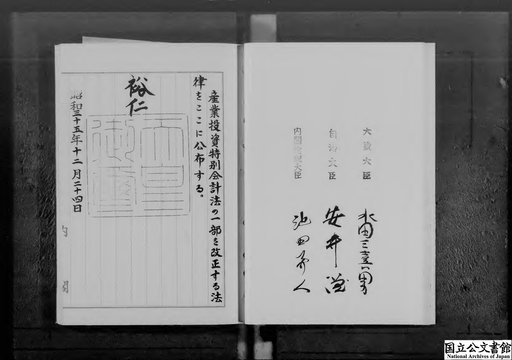 大蔵大臣 水田三喜男
自治大臣 安井謙
内閣総理大臣 池田勇人
産業投資特別会計法の一部を改正する法
律をここに公布する。
裕仁
天皇御璽
昭和三十五年十二月二十四日
国立公文書館
National Archives of Japan